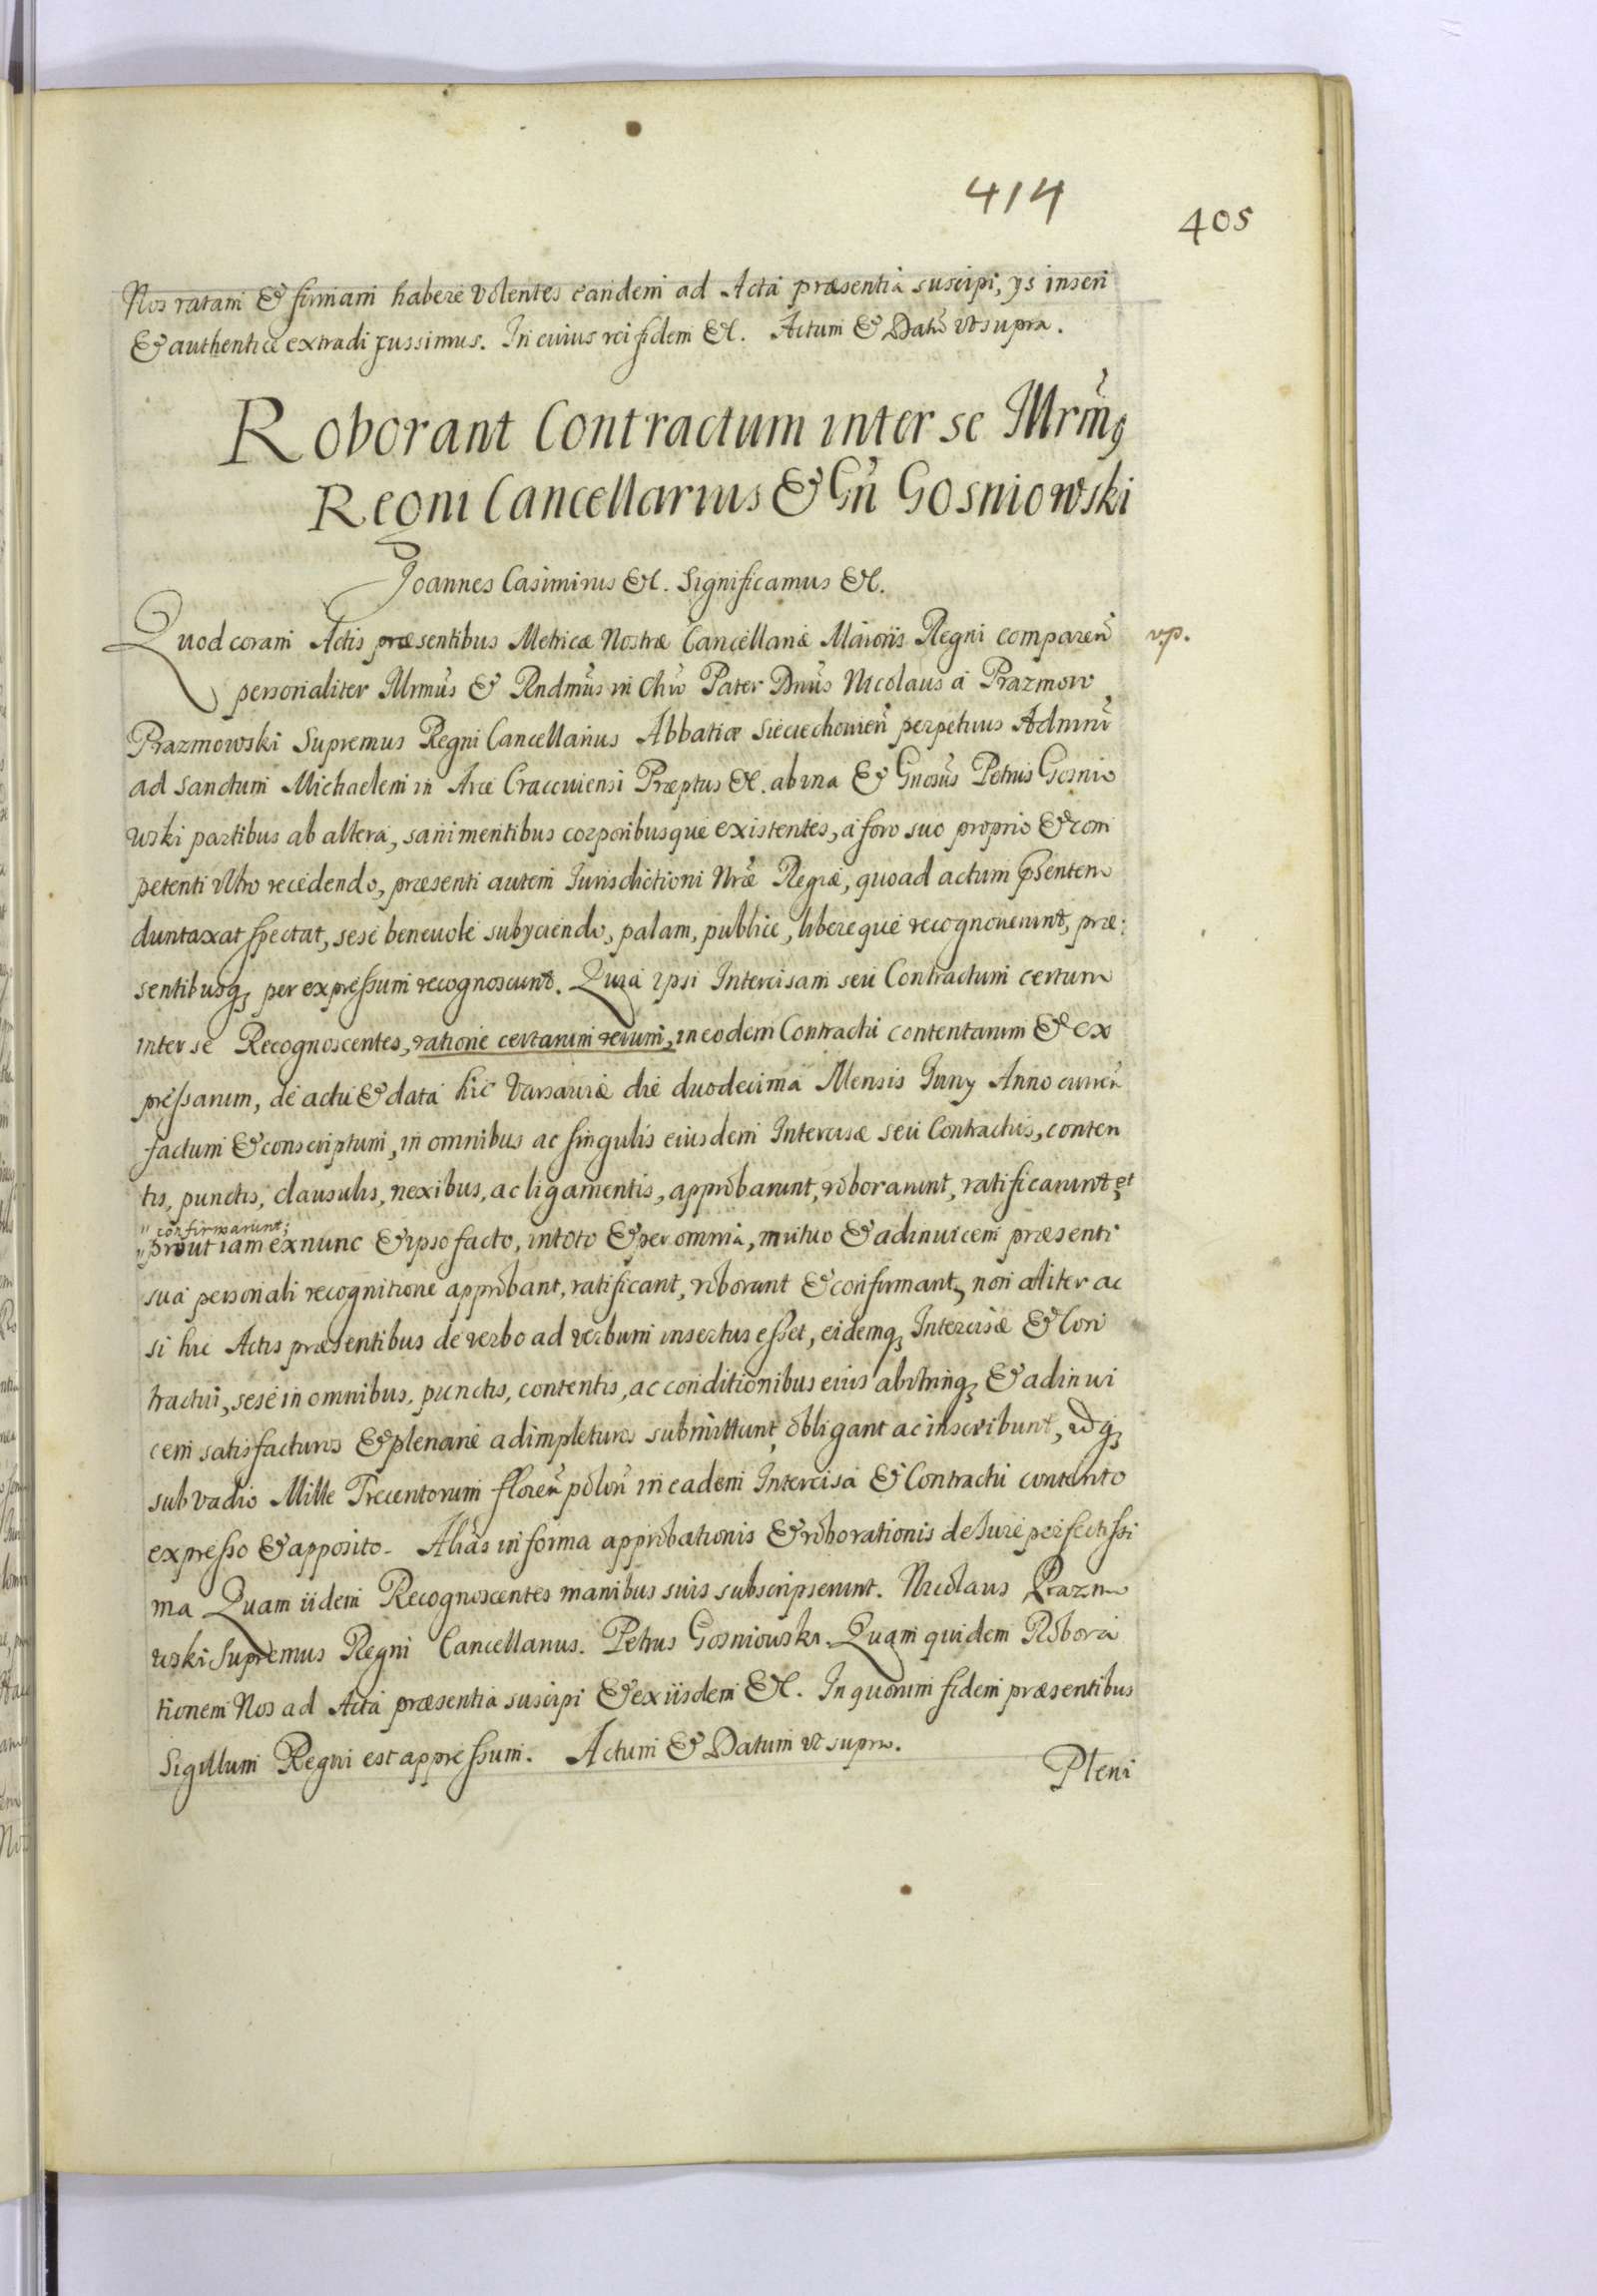 414
405
Nos ratam & firmam habere volentes eandem ad Acta præsentia suscipi, ys inseri
& authentice extradi jussimus. In cuius rei fidem &c. Actum & Datũ vt supra.
Roborant Contractum inter se Illrm̃9
Regni Cancellarius & Gñ Gosniowski
Joannes Casimirus &c. Significamus &c.
Quod coram Actis præsentibus Metricæ Nostræ Cancellariæ Maioris Regni comparen̄ vp.
personaliter Illrmũs & Rndmũs in Chr̃o Pater Dnũs Nicolaus a Prazmow
Prazmowski Supremus Regni Cancellarius Abbatiæ Sieciechovien̄ perpetuus Admnr̃
ad Sanctum Michaelem in Arce Cracoviensi Præptus &c. ab vna & Gnosũs Petrus Gosnio
wski partibus ab altera, sani mentibus corporibusque existentes, a foro suo proprio & com
petenti vltro recedendo, præsenti autem Jurisdictioni Nræ̃ Regiæ, quoad actum p̃sentem
duntaxat spectat, sese benevole subyciendo, palam, publice, libereque recognoverunt, præ:
sentibusq₃ per expressum recognoscunt. Quia ipsi Intercisam seu Contractum certum
inter se Recognoscentes, ratione certarum rerum, in eodem Contractu contentarum & ex
pressarum, de actu & data hic Varsaviæ die duodecima Mensis Juny Anno curren̄
factum & conscriptum, in omnibus ac singulis eiusdem Intercisæ seu Contractus, conten
tis, punctis, clausulis, nexibus, ac ligamentis, approbarunt, roborarunt, ratificarunt et
" confirmarunt;
" prout iam ex nunc & ipso facto, in toto & per omnia, mutuo & ad invicem præsenti
sua personali recognitione approbant, ratificant, roborant & confirmant, non aliter ac
si hic Actis præsentibus de verbo ad verbum insertus esset, eidemq₃ Intercisæ & Con
tractui, sese in omnibus, punctis, contentis, ac conditionibus eius ab vtrinq₃ & ad invi
cem satisfacturos & plenarie adimpleturos submittunt, obligant ac inscribunt, idq₃
sub vadio Mille Trecentorum floren̄ polon̄ in eadem Intercisa & Contractu contento
expresso & apposito. Alias in forma approbationis & roborationis de Jure perfectissi
ma Quam iidem Recognoscentes manibus suis subscripserunt. Nicolaus Prazmo
wski Supremus Regni Cancellarius. Petrus Gosniowski. Quam quidem Robora
tionem Nos ad Acta præsentia suscipi & ex iisdem &c. In quorum fidem præsentibus
Sigillum Regni est appressum. Actum & Datum vt supra.
Pleni